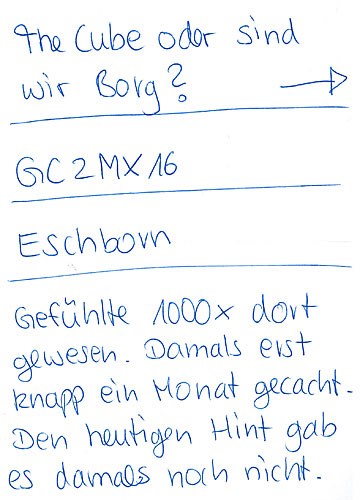 The Cube oder sind
wir Borg?
GC2MX16
Eschborn
Gefühlte 1000x dort
gewesen. Damals erst
knapp ein Monat gecacht.
Den heutigen Hint gab
es damals noch nicht.